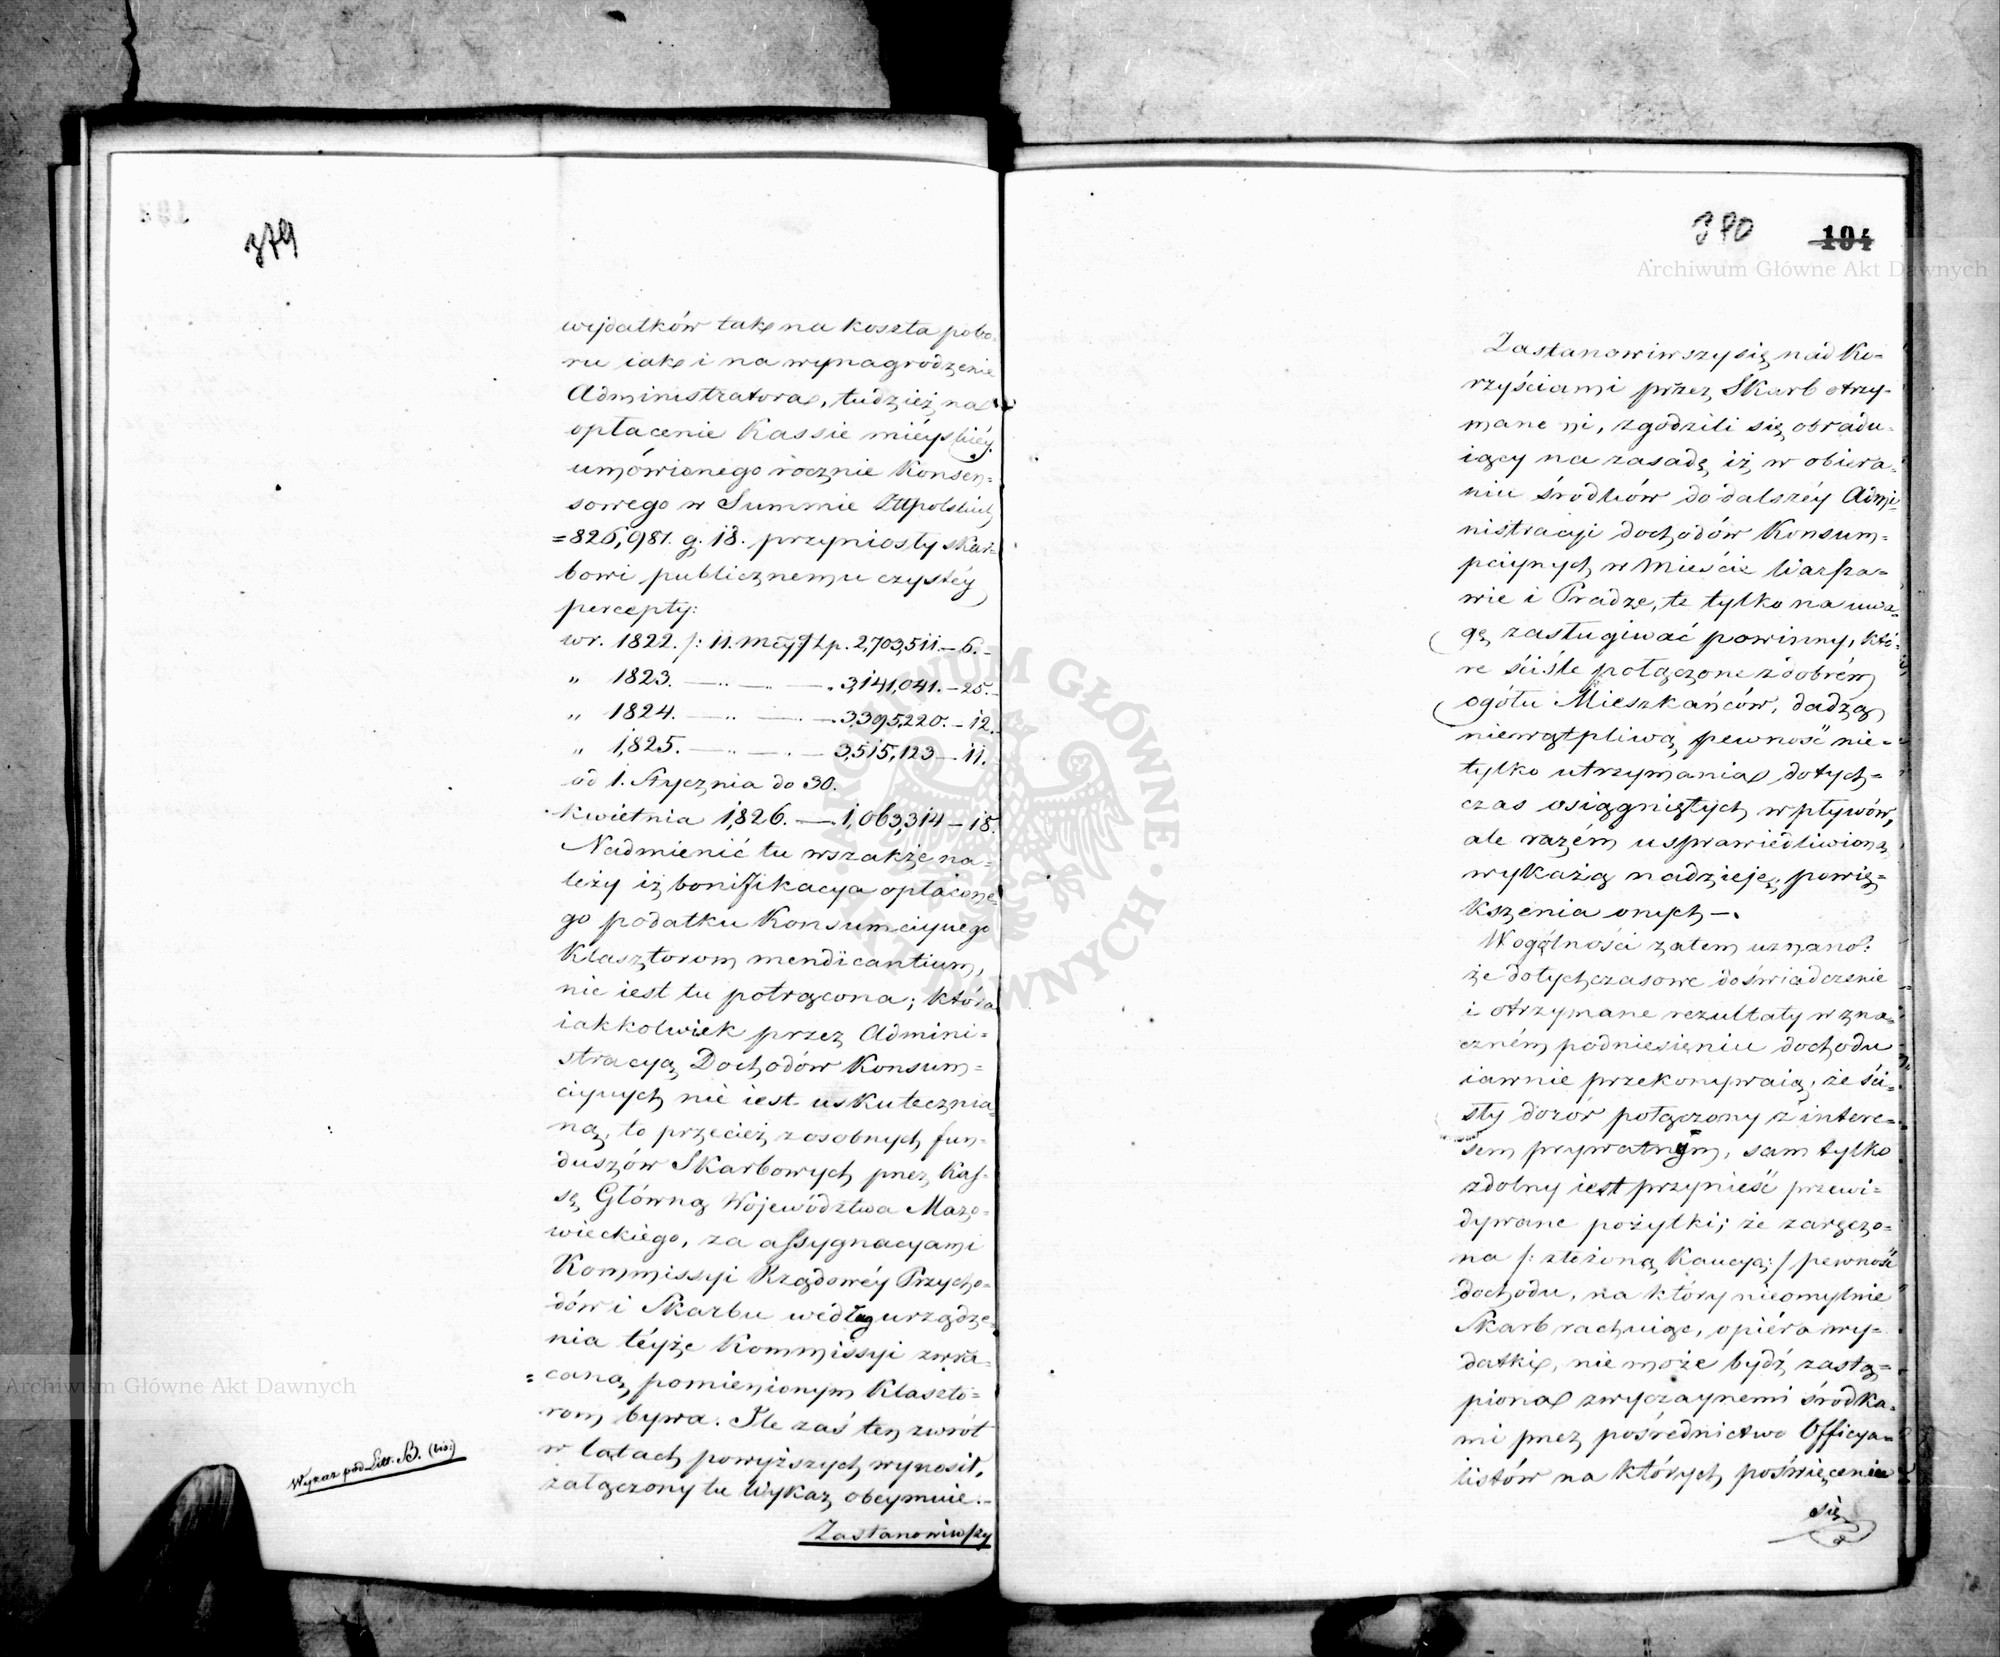 379
wydatków tak na koszta pobo-
ru iak i na wynagrodzenie
Administratora, tudzież na
opłacenie Kassie miéyskiéy
umówionego rocznie Konsen-
sowego w Summie Złłpolskich
=826,981. g. 18. przyniosły skar-
bowi publicznemu czystéy
percepty:
w r. 1822. /: 11. mcy/ Złp. 2,703,511.–6.–
„ 1823. — „ — — . 3,141,041.–25.–
„ 1824. — „ — — . 3,395,220.–12.
„ 1,825. — „ — „ — 3,515,123–11.
od 1. Stycznia do 30.
kwietnia 1,826. —. 1,063,314–18.
Nadmienić tu wszakże na-
leży iż bonifikacya opłacone-
go podatku Konsumcyinego
Klasztorom mendicantium,
nie iest tu potrącona; która
iakkolwiek przez Admini-
stracyą Dochodów Konsum-
cyinych nie iest uskutecznia-
ną, to przecież z osobnych fun-
duszów Skarbowych przez Kas-
sę Główną Województwa Mazo-
wieckiego, za assygnacyami
Kommissyi Rządowéy Przycho-
dów i Skarbu według urządze-
nia téyże Kommissyi zwra-
caną pomienionym Klaszto-
rom bywa. Ile zaś ten zwrót
w latach powyższych wynosił,
załączony tu Wykaz obeymuie.–
Wykaz pod Litt. B. (bis:)
Zastanowiwszy
380
194
Archiwum Główne Akt Dawnych
Zastanowiwszy się nad Ko-
rzyściami przez Skarb otrzy-
manemi, zgodzili się obradu-
iący na zasadę iż w obiera-
niu środków do dalszéy Admi-
nistracyi dochodów Konsum-
pcyinych w Mieście Warsza-
wie i Pradze, te tylko na uwa-
gę zasługiwać powinny, któ-
re ściśle połączone z dobrém
ogółu Mieszkańców, dadzą
niewątpliwą pewność nie-
tylko utrzymania dotych-
czas osiągniętych wpływów,
ale razém usprawiedliwioną
wykażą nadzieję powię-
kszenia onych –.
W ogólności zatem uznano:
że dotychczasowe doświadczenie
i otrzymane rezultaty w zna-
czném podniesieniu dochodu
iawnie przekonywaią, że ści-
sły dozór połączony z intere-
sem prywatnym, sam tylko
zdolny iest przynieść przewi-
dywane pożytki; że zaręczo-
na /: złożoną Kaucyą :/ pewność
dochodu, na który nieomylnie
Skarb rachuiąc, opiéra wy-
datki, nie może bydź zastą-
piona zwyczaynemi środka-
mi przez pośrednictwo Officya-
listów na których poświęceniu
się
Archiwum Główne Akt Dawnych
ARCHIWUM GŁÓWNE AKT DAWNYCH